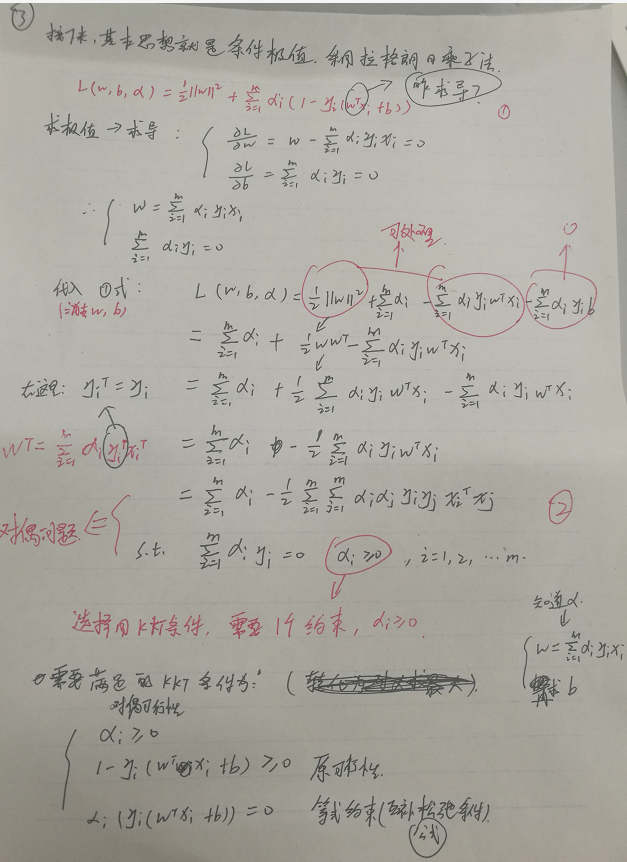 ③
接下来,其基本思想就是条件极值.采用拉格朗日乘子法.
L(w,b,α)=½||w||²+∑_{i=1}^{m} αi(1-yi(wᵀxi+b)) ① 咋求导?
求极值→求导: { ∂L/∂w = w - ∑_{i=1}^{m} αi yi xi = 0
∂L/∂b = ∑_{i=1}^{m} αi yi = 0
∴ { w = ∑_{i=1}^{m} αi yi xi
∑_{i=1}^{m} αi yi = 0
可处理. 0
代入①式: L(w,b,α)=½||w||²+∑_{i=1}^{m} αi - ∑_{i=1}^{m} αi yi wᵀxi - ∑_{i=1}^{m} αi yi b
(消去w,b)
= ∑_{i=1}^{m} αi + ½wwᵀ - ∑_{i=1}^{m} αi yi wᵀxi
在这里: yiᵀ=yi = ∑_{i=1}^{m} αi + ½∑_{i=1}^{m} αi yi wᵀxi - ∑_{i=1}^{m} αi yi wᵀxi
wᵀ=∑_{i=1}^{m} αi yiᵀ xiᵀ = ∑_{i=1}^{m} αi - ½∑_{i=1}^{m} αi yi wᵀxi
= ∑_{i=1}^{m} αi - ½∑_{i=1}^{m}∑_{j=1}^{m} αi αj yi yj xiᵀxj ②
对偶问题 ⇐ {
s.t. ∑_{i=1}^{m} αi yi = 0 αi≥0, i=1,2,…m.
选择用KKT条件,需要1个约束,αi≥0.
知道α.
{ w=∑_{i=1}^{m} αi yi xi
求b
需要满足的KKT条件为:
对偶可行性
{ αi≥0
1-yi(wᵀxi+b)≥0 原可行性.
αi(yi(wᵀxi+b))=0 等式约束(互补松弛条件).
公式